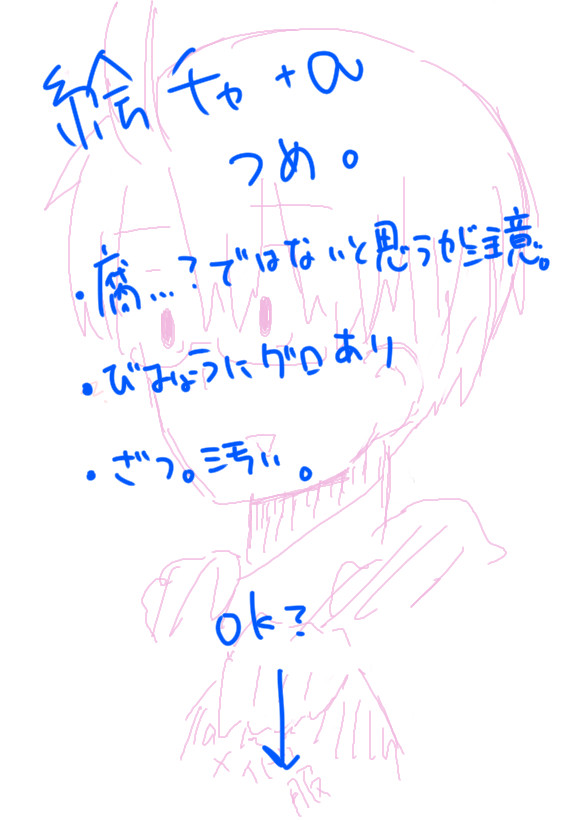 絵チャ+α
つめ。
・腐…?ではないと思うが注意。
・びみょうにグロあり
・ざつ。汚い。
ok?
↓
メイド
服